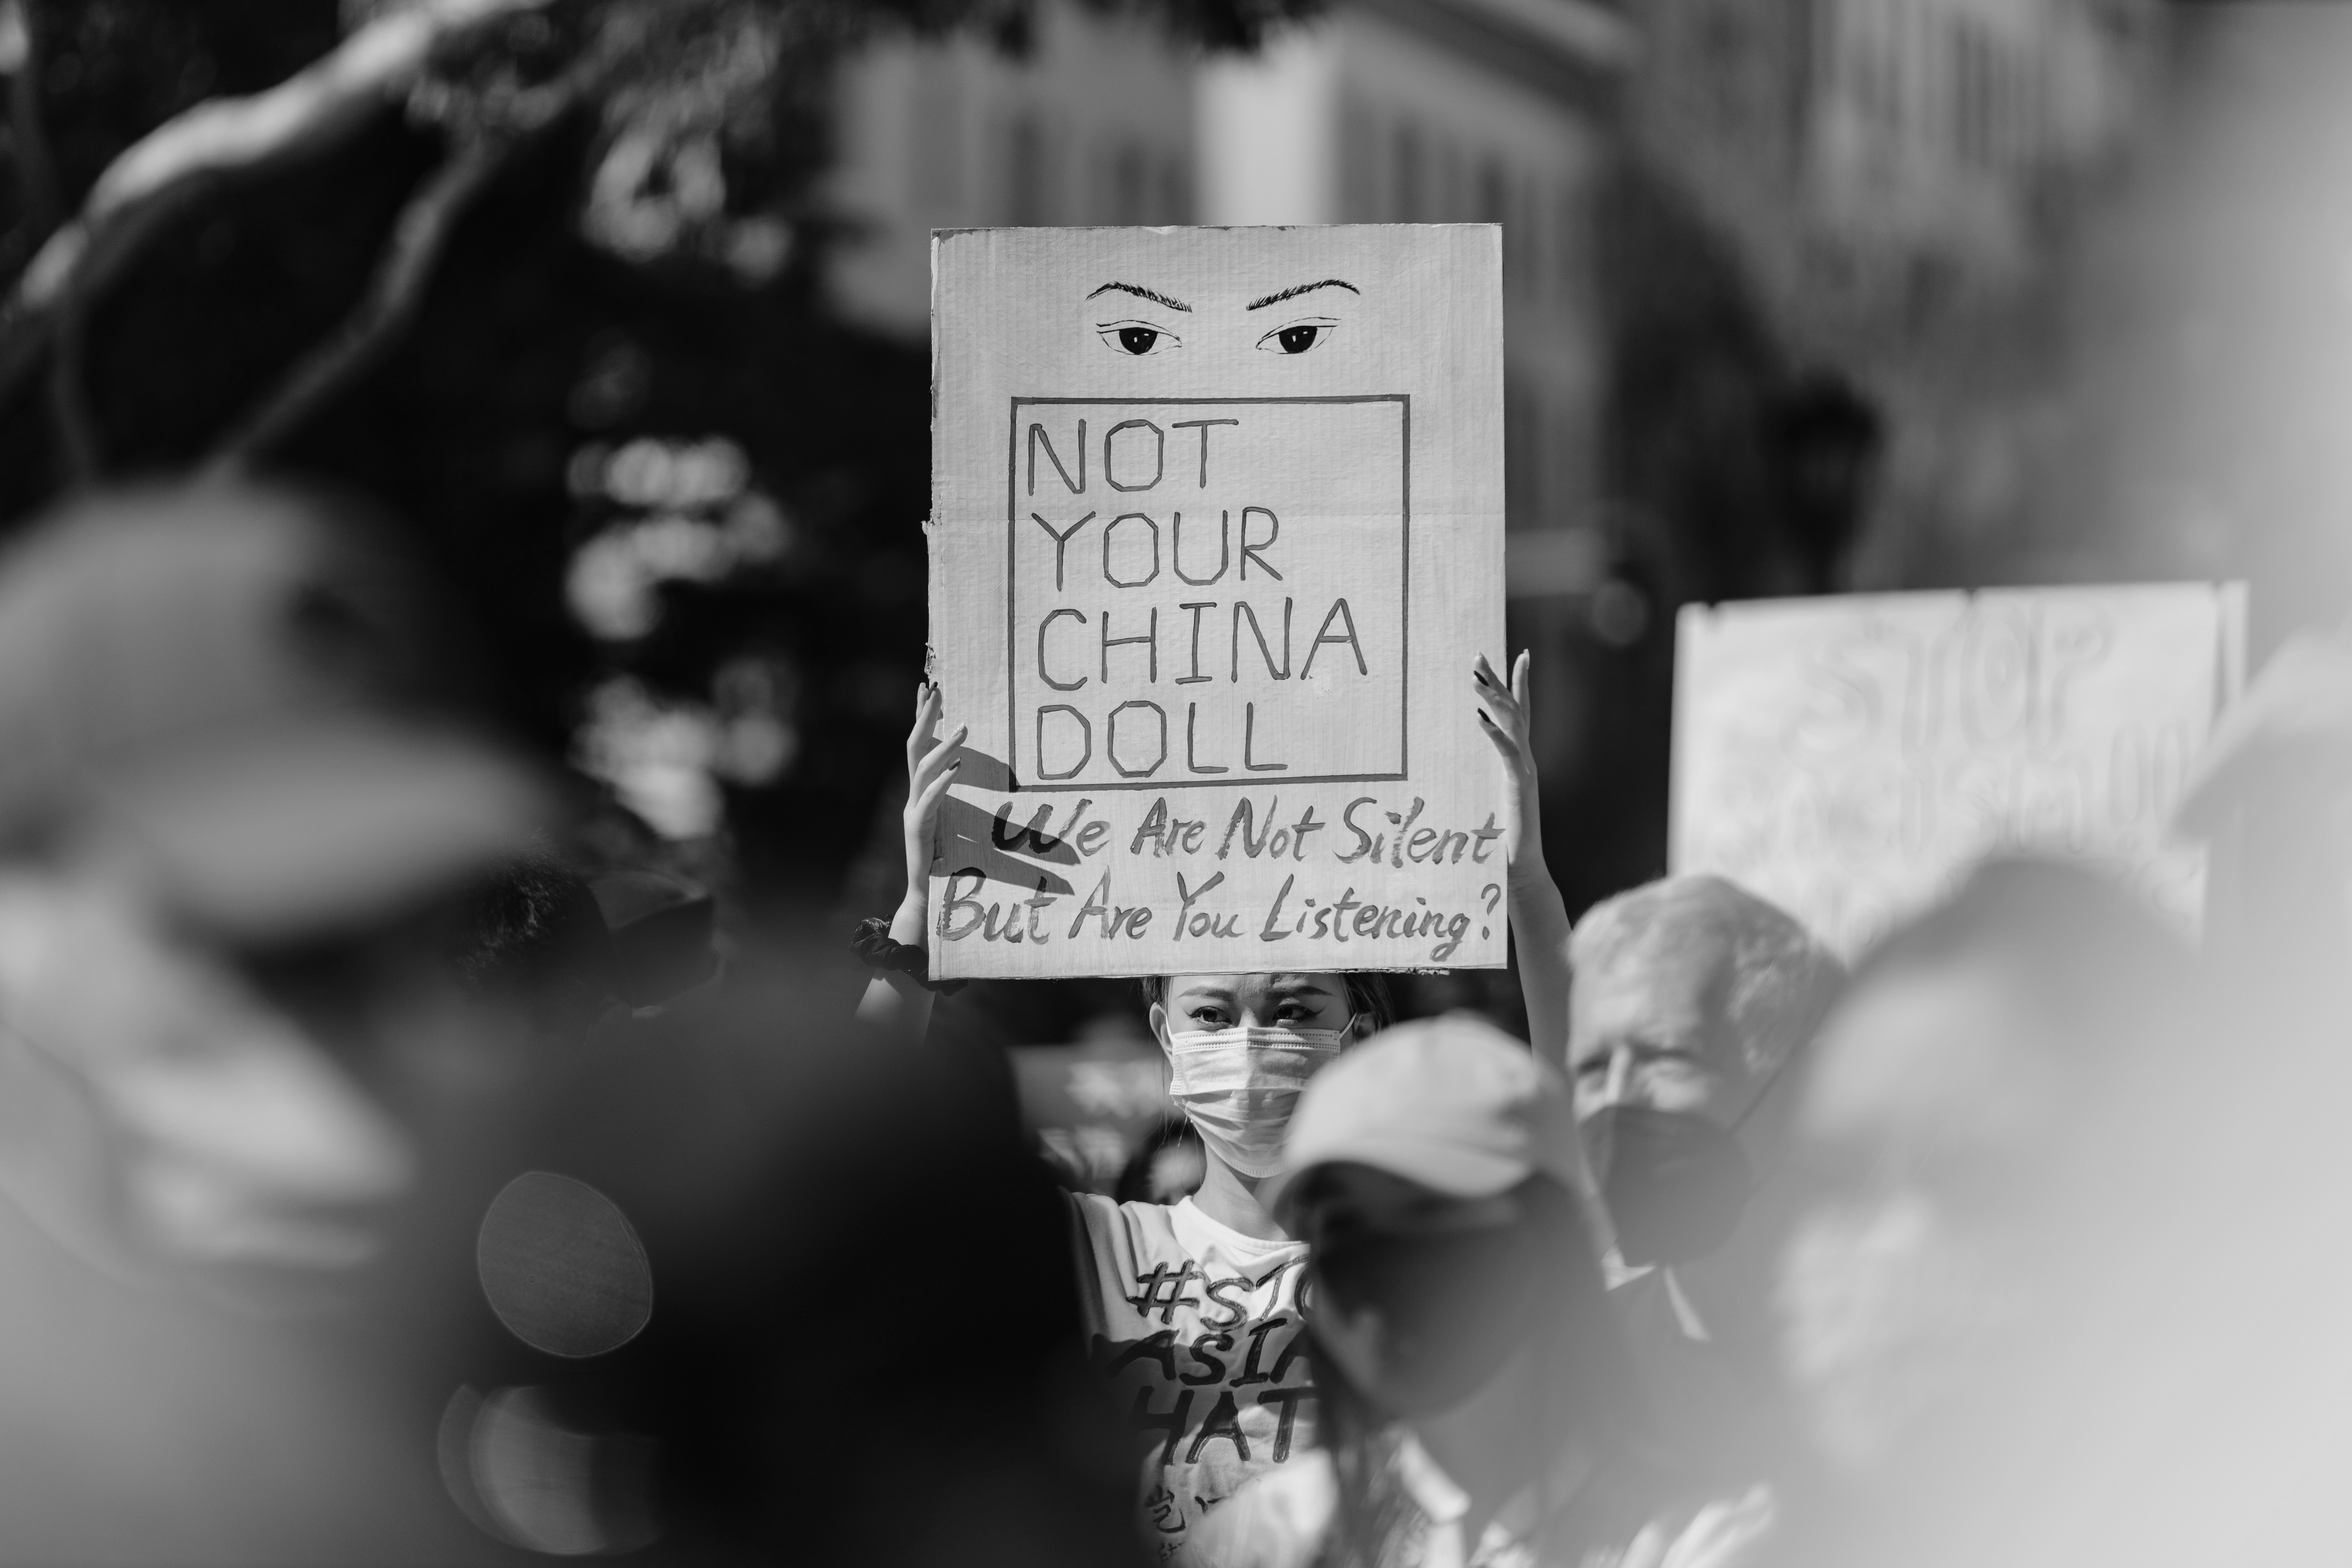 NOT
YOUR
CHINA
DOLL
We Are Not Silent
But Are You Listening?
STOP
#STO
ASIA
HAT